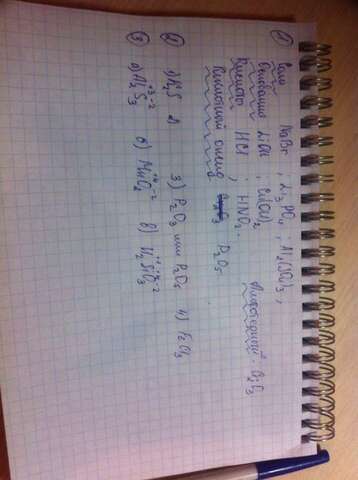 ①
Соли NaBr, Li₃PO₄, Al₂(SO₄)₃,
Основание LiOH; Cu(OH)₂
Кислоты HCl; HNO₂.
Кислотный оксид P₂O₅ Амфотерный - Cr₂O₃
② 1) 2) 3) P₂O₃ или P₂O₅ 4)
③ а) Al₂⁺³S₃⁻² б) Mn⁺⁴O₂⁻² в) H₂⁺¹Si⁺⁴O₃⁻²